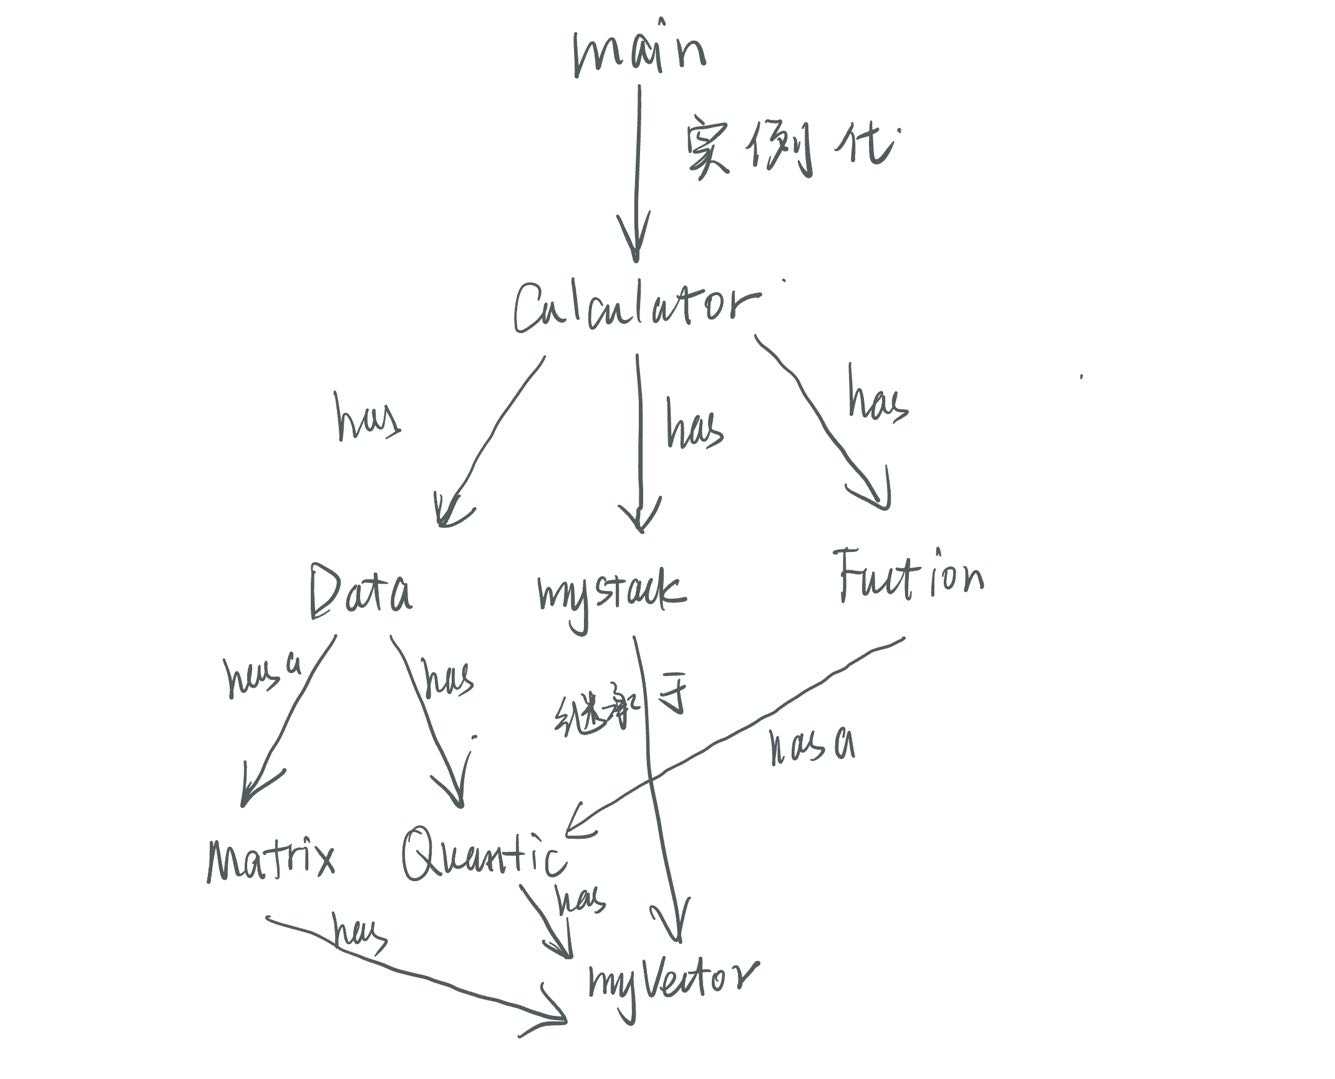 main
实例化
Calculator
has
has
has
Data
mystack
Fuction
has a
has
继承于
has a
Matrix
Quantic
has
has
myVector